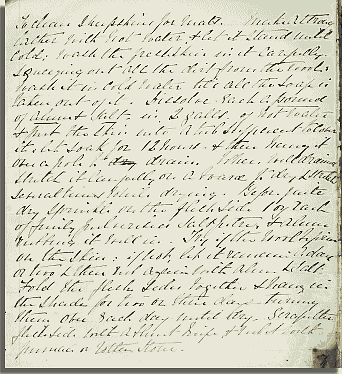 To Clean Sheepskins for Matts. Make a strong
lather with Hot Water & let it stand until
Cold; Wash the fresh skin in it carefully,
Squeezing out all the dirt from the wool;
Wash it in Cold Water till all the soap is
taken out of it. Dissolve each a pound
of alum & Salt in 2 galls. of Hot Water
& put the skin into a tub sufficient to cover
it; let soak for 12 hours & then hang it
on a pole to drain. When well drained
stretch it carefully on a board to dry & stretch
several times while drying. Before quite
dry sprinkle on the flesh side 1 oz each
of finely pulverised Saltpetre & Alum
rubbing it well in. Try if the wool is firm
on the skin: if not, let it remain a day
or two & then rub again with Alum & Salt.
Fold the flesh sides together & hang in
the Shade for two or three days turning
them over each day until dry. Scrape the
flesh side with a blunt knife & rub it with
pumice or Rotten Stone.